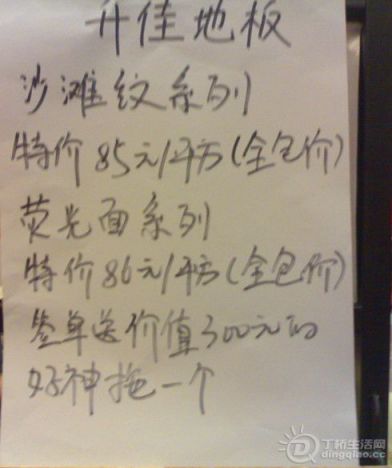 升佳地板
沙滩纹系列
特价85元/平方(全包价)
荧光面系列
特价86元/平方(全包价)
签单送价值300元的
好神拖一个
丁桥生活网
dingqiao.cc